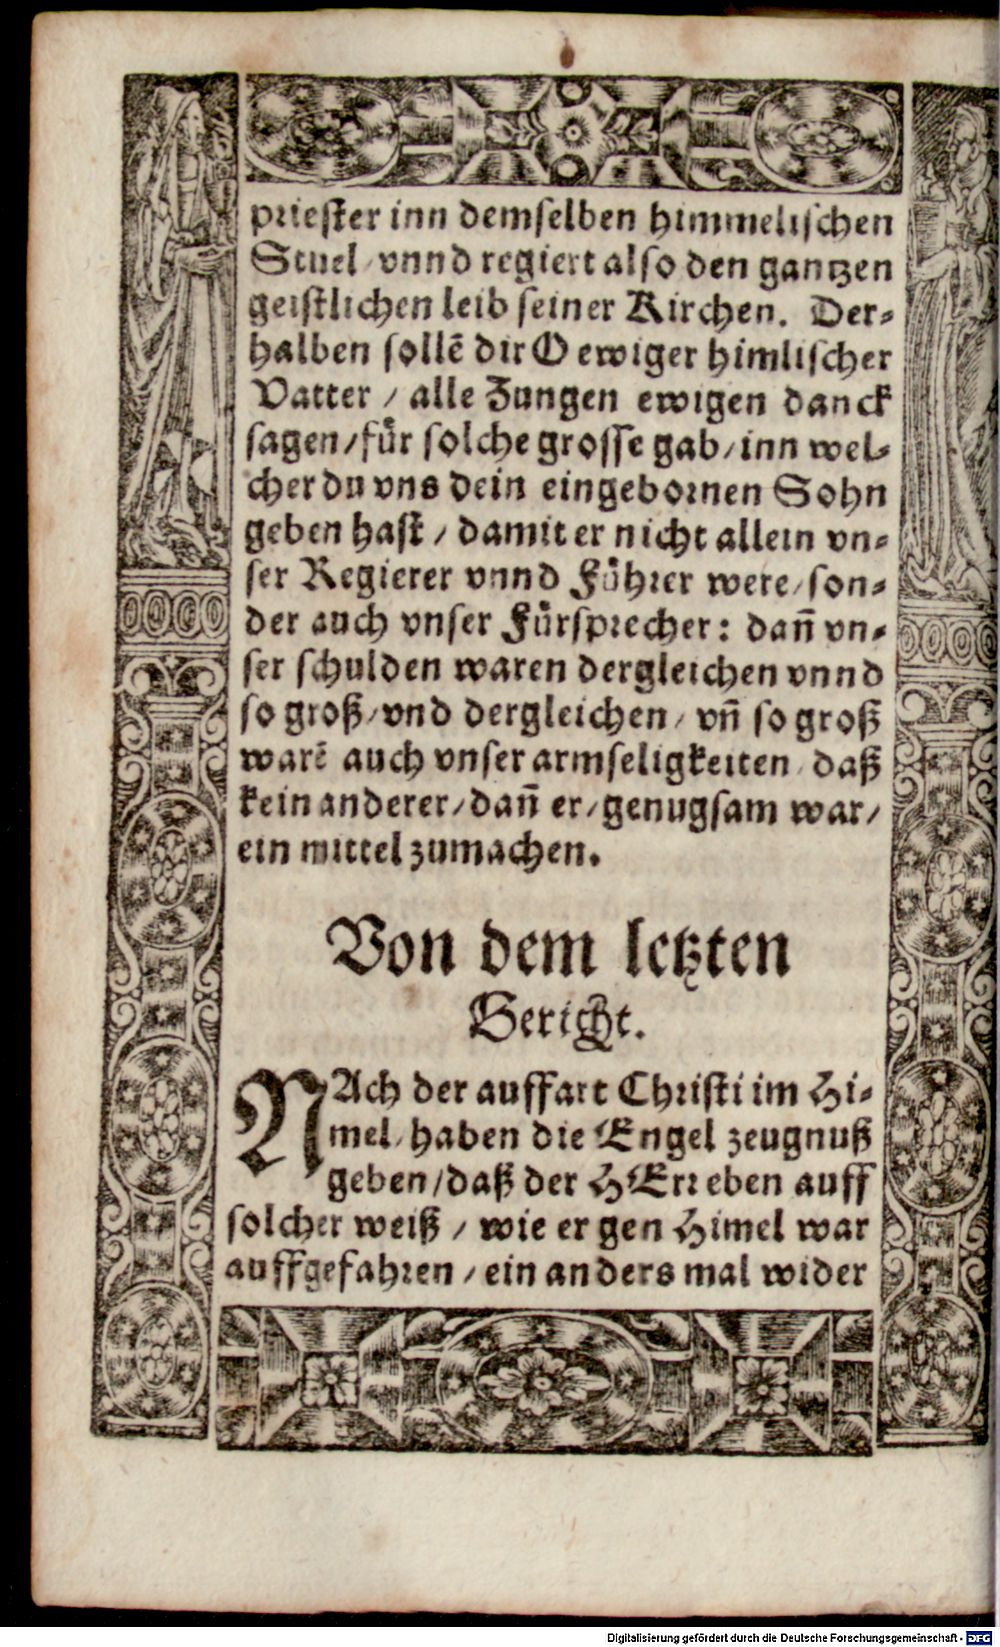 priester inn demselben himmelischen
Stuel / vnnd regiert also den gantzen
geistlichen leib seiner Kirchen. Der⸗
halben sollẽ dir O ewiger himlischer
Vatter / alle Zungen ewigen danck
sagen / fuͤr solche grosse gab / inn wel⸗
cher du vns dein eingebornen Sohn
geben hast / damit er nicht allein vn⸗
ser Regierer vnnd Fuͤhrer were / son⸗
der auch vnser Fuͤrsprecher: dañ vn⸗
ser schulden waren dergleichen vnnd
so groß / vnd dergleichen / vñ so groß
warẽ auch vnser armseligkeiten / daß
kein anderer / dañ er / genugsam war /
ein mittel zumachen.
Von dem letzten
Gericht.
NAch der auffart Christi im Hi⸗
mel / haben die Engel zeugnuß
geben / daß der HErr eben auff
solcher weiß / wie er gen Himel war
auffgefahren / ein anders mal wider
Digitalisierung gefördert durch die Deutsche Forschungsgemeinschaft - DFG